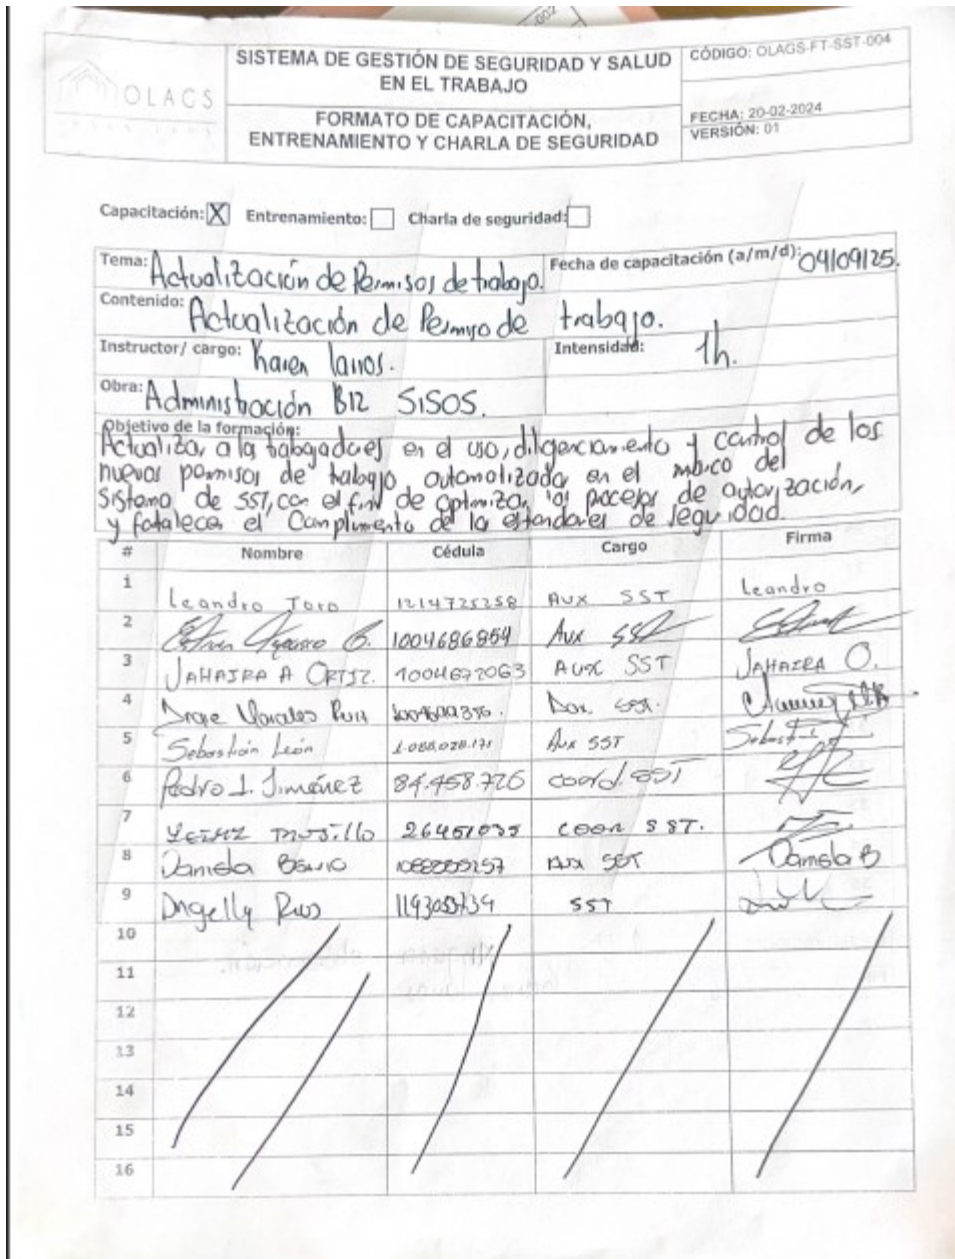 -002
OLAGS
SISTEMA DE GESTIÓN DE SEGURIDAD Y SALUD
EN EL TRABAJO
CÓDIGO: OLAGS-FT-SST-004
FORMATO DE CAPACITACIÓN,
ENTRENAMIENTO Y CHARLA DE SEGURIDAD
FECHA: 20-02-2024
VERSIÓN: 01
Capacitación: X Entrenamiento: Charla de seguridad:
Tema: Actualización de Permisos de trabajo. Fecha de capacitación (a/m/d): 04/09/25.
Contenido: Actualización de Permiso de trabajo.
Instructor/ cargo: Karen Intensidad: 1h.
Obra: Administración B12 SISOS.
Objetivo de la formación:
Actualizar a la trabajadores en el uso, diligenciamiento y control de los
nuevos permisos de trabajo automatizada en el marco del
Sistema de SST, con el fin de optimizar los procesos de autorización,
y fortalecer el Cumplimento de la estandares de seguridad.
# Nombre Cédula Cargo Firma
1 Leandro Toro 1214725258 Aux SST Leandro
2 1004686854 Aux SST
3 JAHAIRA A ORTIZ. 1004672063 AUX SST JAHAIRA O.
4 Morales
5 Sebastián León 1.088.028.171 Aux SST
6 Pedro L. Jiménez 84.458.726 coord. SST
7 Trujillo COOR SST.
8 Daniela Aux SST Daniela B
9 Angelly Rios SST
10
11
12
13
14
15
16